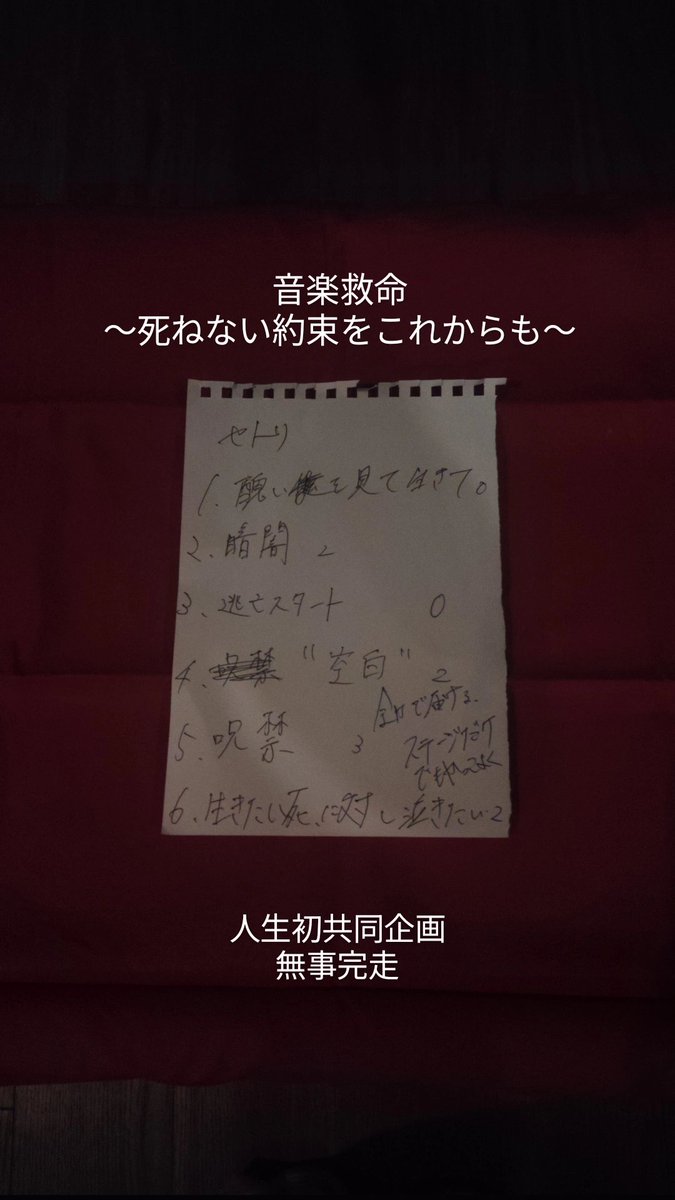 音楽救命
～死ねない約束をこれからも～
セトリ
1. 醜い俺を見て生きて。
2. 暗闇 2
3. 逃亡スタート 0
4. 呪禁 "空白" 2
5. 呪禁 3
で届ける、
ステージだけ
6. 生きたい死に対し泣きたい 2
人生初共同企画
無事完走